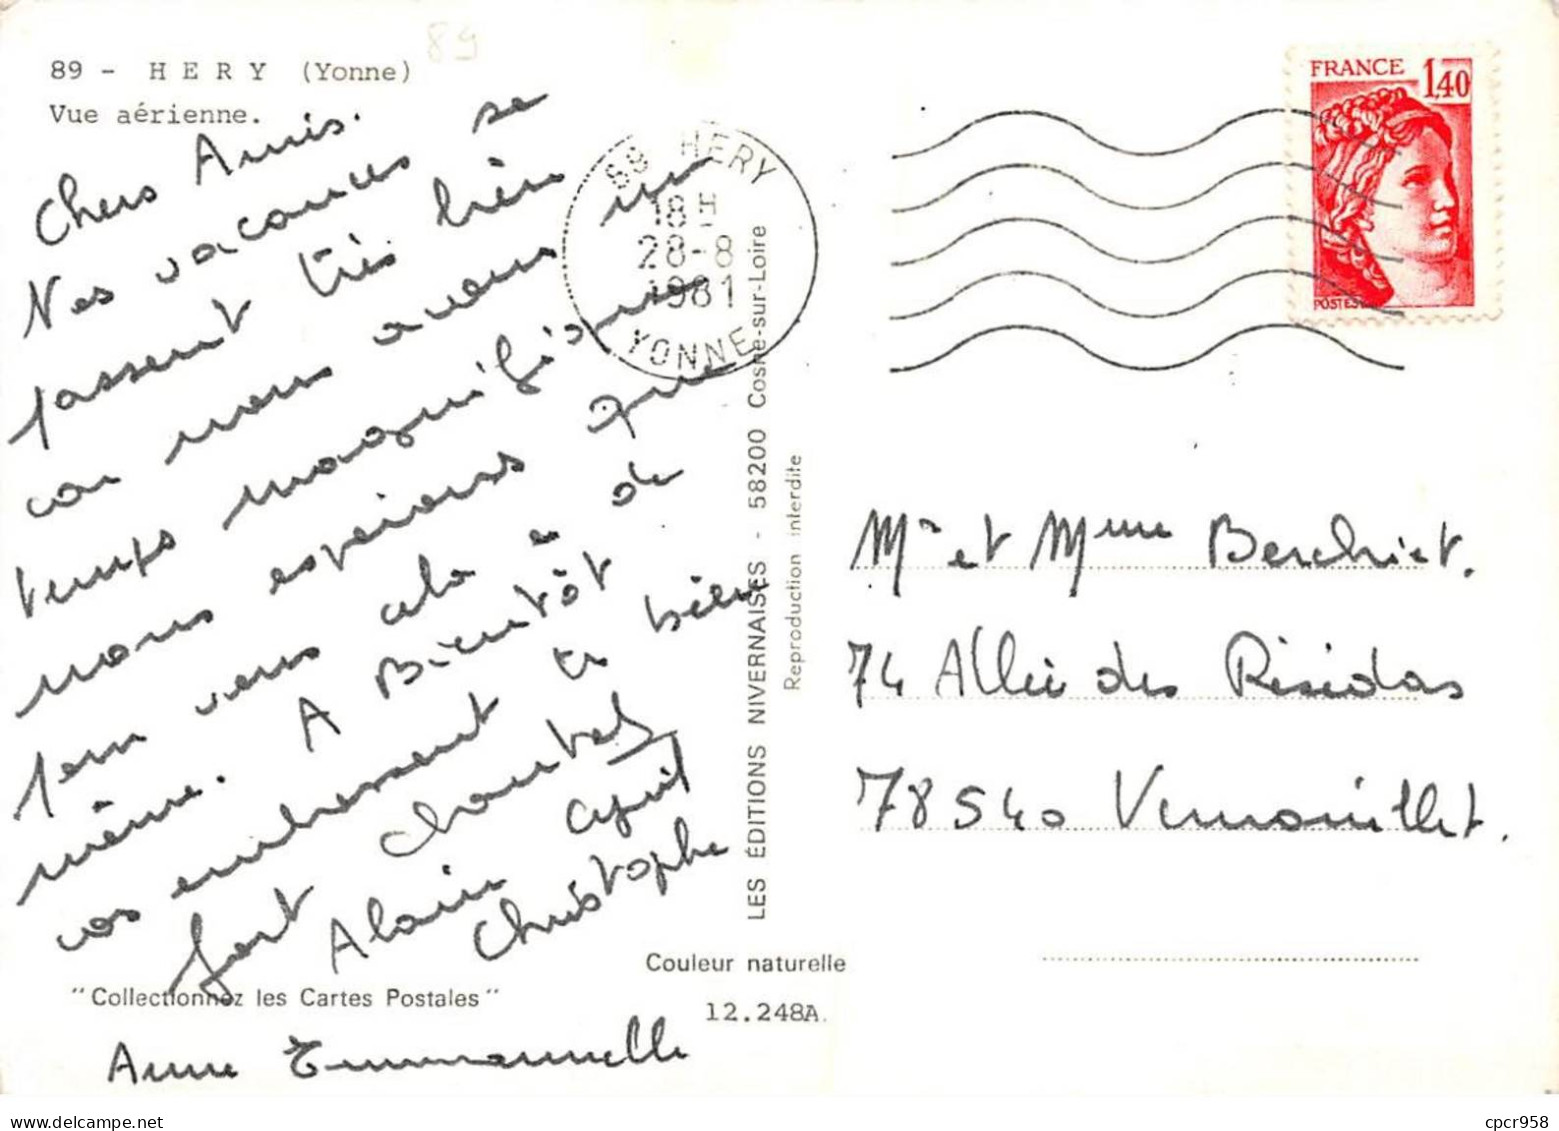 89 - HERY (Yonne)
Vue aérienne.
89
Chers Amis.
Nos vacances se
passent très bien
car nous avons un
temps magnifique
nous espérons que
pour vous cela a de
même. A Bientôt
vos embrassent très bien
fort Chantal
Alain Cyril
Christophe
Anne Emmanuelle
"Collectionnez les Cartes Postales"
Couleur naturelle
12.248A.
LES ÉDITIONS NIVERNAISES - 58200 Cosne-sur-Loire
Reproduction interdite
89 HERY
18H
28-8
1981
YONNE
FRANCE 1,40
POSTES
Mr et Mme Berchiet.
74 Allée des Résédas
78540 Vernouillet.
cpcr958